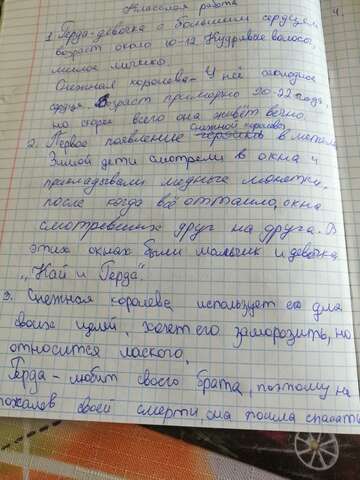 Классная работа
1. Герда-девочка с большим сердцем
возраст около 10-12. Кудрявые волосы,
милое личико.
Снежная королева - У неё холодное
сердце. Возраст примерно 20-22 года,
но скорее всего она живёт вечно.
2. Первое появление Снежной королевы в метели
Зимой дети смотрели в окна и
прикладывали медные монетки,
после когда всё оттаило, окна
смотревших друг на друга. В
этих окнах были мальчик и девочка
„Кай и Герда".
3. Снежная королева использует его для
своих целей, хочет его заморозить, но
относится лаского,
Герда - любит своего брата, поэтому не
пожалев своей смерти, она пошла спасать